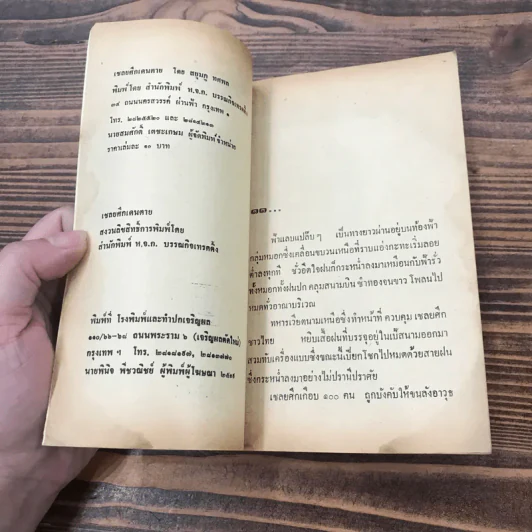 เชลยศึกเดนตาย โดย สยุมภู ทศพล
พิมพ์โดย สำนักพิมพ์ ห.จ.ก. บรรณกิจเทรดดิ้ง
๓๔ ถนนนครสวรรค์ ผ่านฟ้า กรุงเทพ ๑
โทร. ๒๘๒๕๕๒๐ และ ๒๘๑๔๒๑๓
นายสมศักดิ์ เตชะเกษม ผู้จัดพิมพ์จำหน่าย
ราคาเล่มละ ๑๐ บาท
เชลยศึกเดนตาย
สงวนลิขสิทธิ์การพิมพ์โดย
สำนักพิมพ์ ห.จ.ก. บรรณกิจเทรดดิ้ง
พิมพ์ที่ โรงพิมพ์และทำปกเจริญผล
๑๑๐/๖๖–๖๘ ถนนพระราม ๖ (เจริญผลตัดใหม่)
กรุงเทพ ฯ โทร. ๒๘๑๔๑๕๗, ๒๘๑๓๗๗๐
นายพินิจ พืชวณิชย์ ผู้พิมพ์ผู้โฆษณา
๑๑...
ฟ้าแลบแปลบ ๆ เป็นทางยาวผ่านอยู่บนท้องฟ้า
กลุ่มหมอกซึ่งเคลื่อนขบวนเหนือที่ราบเอง่กะทะเริ่มลอย
ต่ำลงทุกที ชั่วอึดใจฝนก็กระหน่ำลงมาเหมือนกับฟ้ารั่ว
ทั้งหมอกทั้งฝนปกคลุมสนามบิน ช้าทองจนขาวโพลนไป
หมดทั่วอาณาบริเวณ
ทหารเวียดนามเหนือซึ่งทำหน้าที่ ควบคุม เชลยศึก
ชาวไทย หยิบเสื้อฝนที่บรรจุอยู่ในเป้สนามออกมา
สวมทับเครื่องแบบซึ่งขณะนี้เปียกโชกไปหมดด้วยสายฝน
ซึ่งกระหน่ำลงมาอย่างไม่ปรานีปราศัย
เชลยศึกเกือบ ๑๐๐ คน ถูกบังคับให้ขนลังอาวุธ